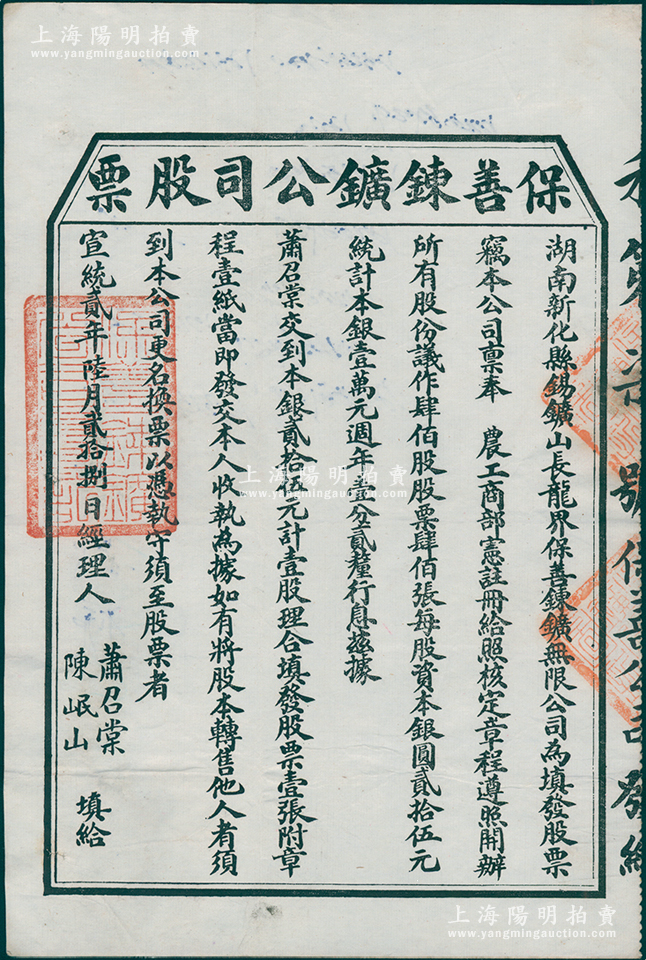 上海陽明拍賣
www.yangmingauction.com
保善鍊鑛公司股票
湖南新化縣錫鑛山長龍界保善鍊鑛無限公司為填發股票
竊本公司禀奉 農工商部憲註冊給照核定章程遵照開辦
所有股份議作肆佰股股票肆佰張每股資本銀圓貳拾伍元
統計本銀壹萬元週年壹分貳釐行息茲據
蕭召棠交到本銀貳拾伍元計壹股理合填發股票壹張附章
程壹紙當即發交本人收執為據如有將股本轉售他人者須
到本公司更名換票以憑執守須至股票者
宣統貳年陸月貳拾捌日經理人 蕭召棠 陳岷山 填給
號保善公司發給
上海陽明拍賣
www.yangmingauction.com
上海陽明拍賣
www.yangmingauction.com